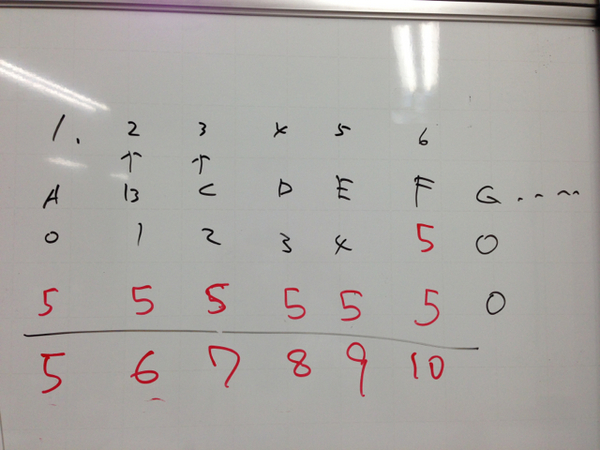 1. 2 3 4 5 6
↑ ↑
A B C D E F G.....
0 1 2 3 4 5 0
5 5 5 5 5 5 0
5 6 7 8 9 10